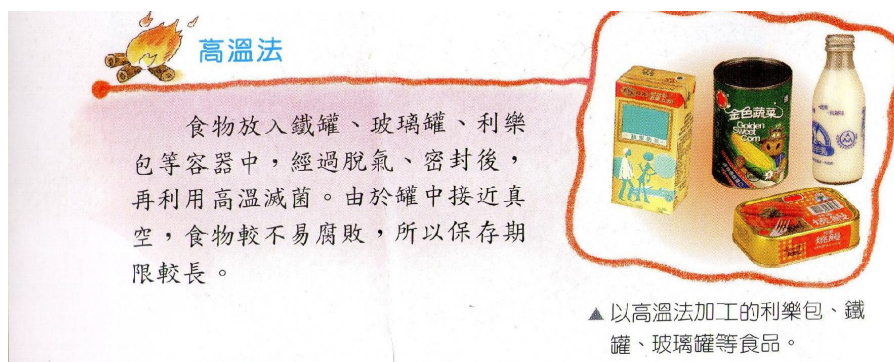 高溫法
食物放入鐵罐、玻璃罐、利樂
包等容器中，經過脫氣、密封後，
再利用高溫滅菌。由於罐中接近真
空，食物較不易腐敗，所以保存期
限較長。
金色蔬菜
Golden
Sweet
Corn
▲以高溫法加工的利樂包、鐵
罐、玻璃罐等食品。